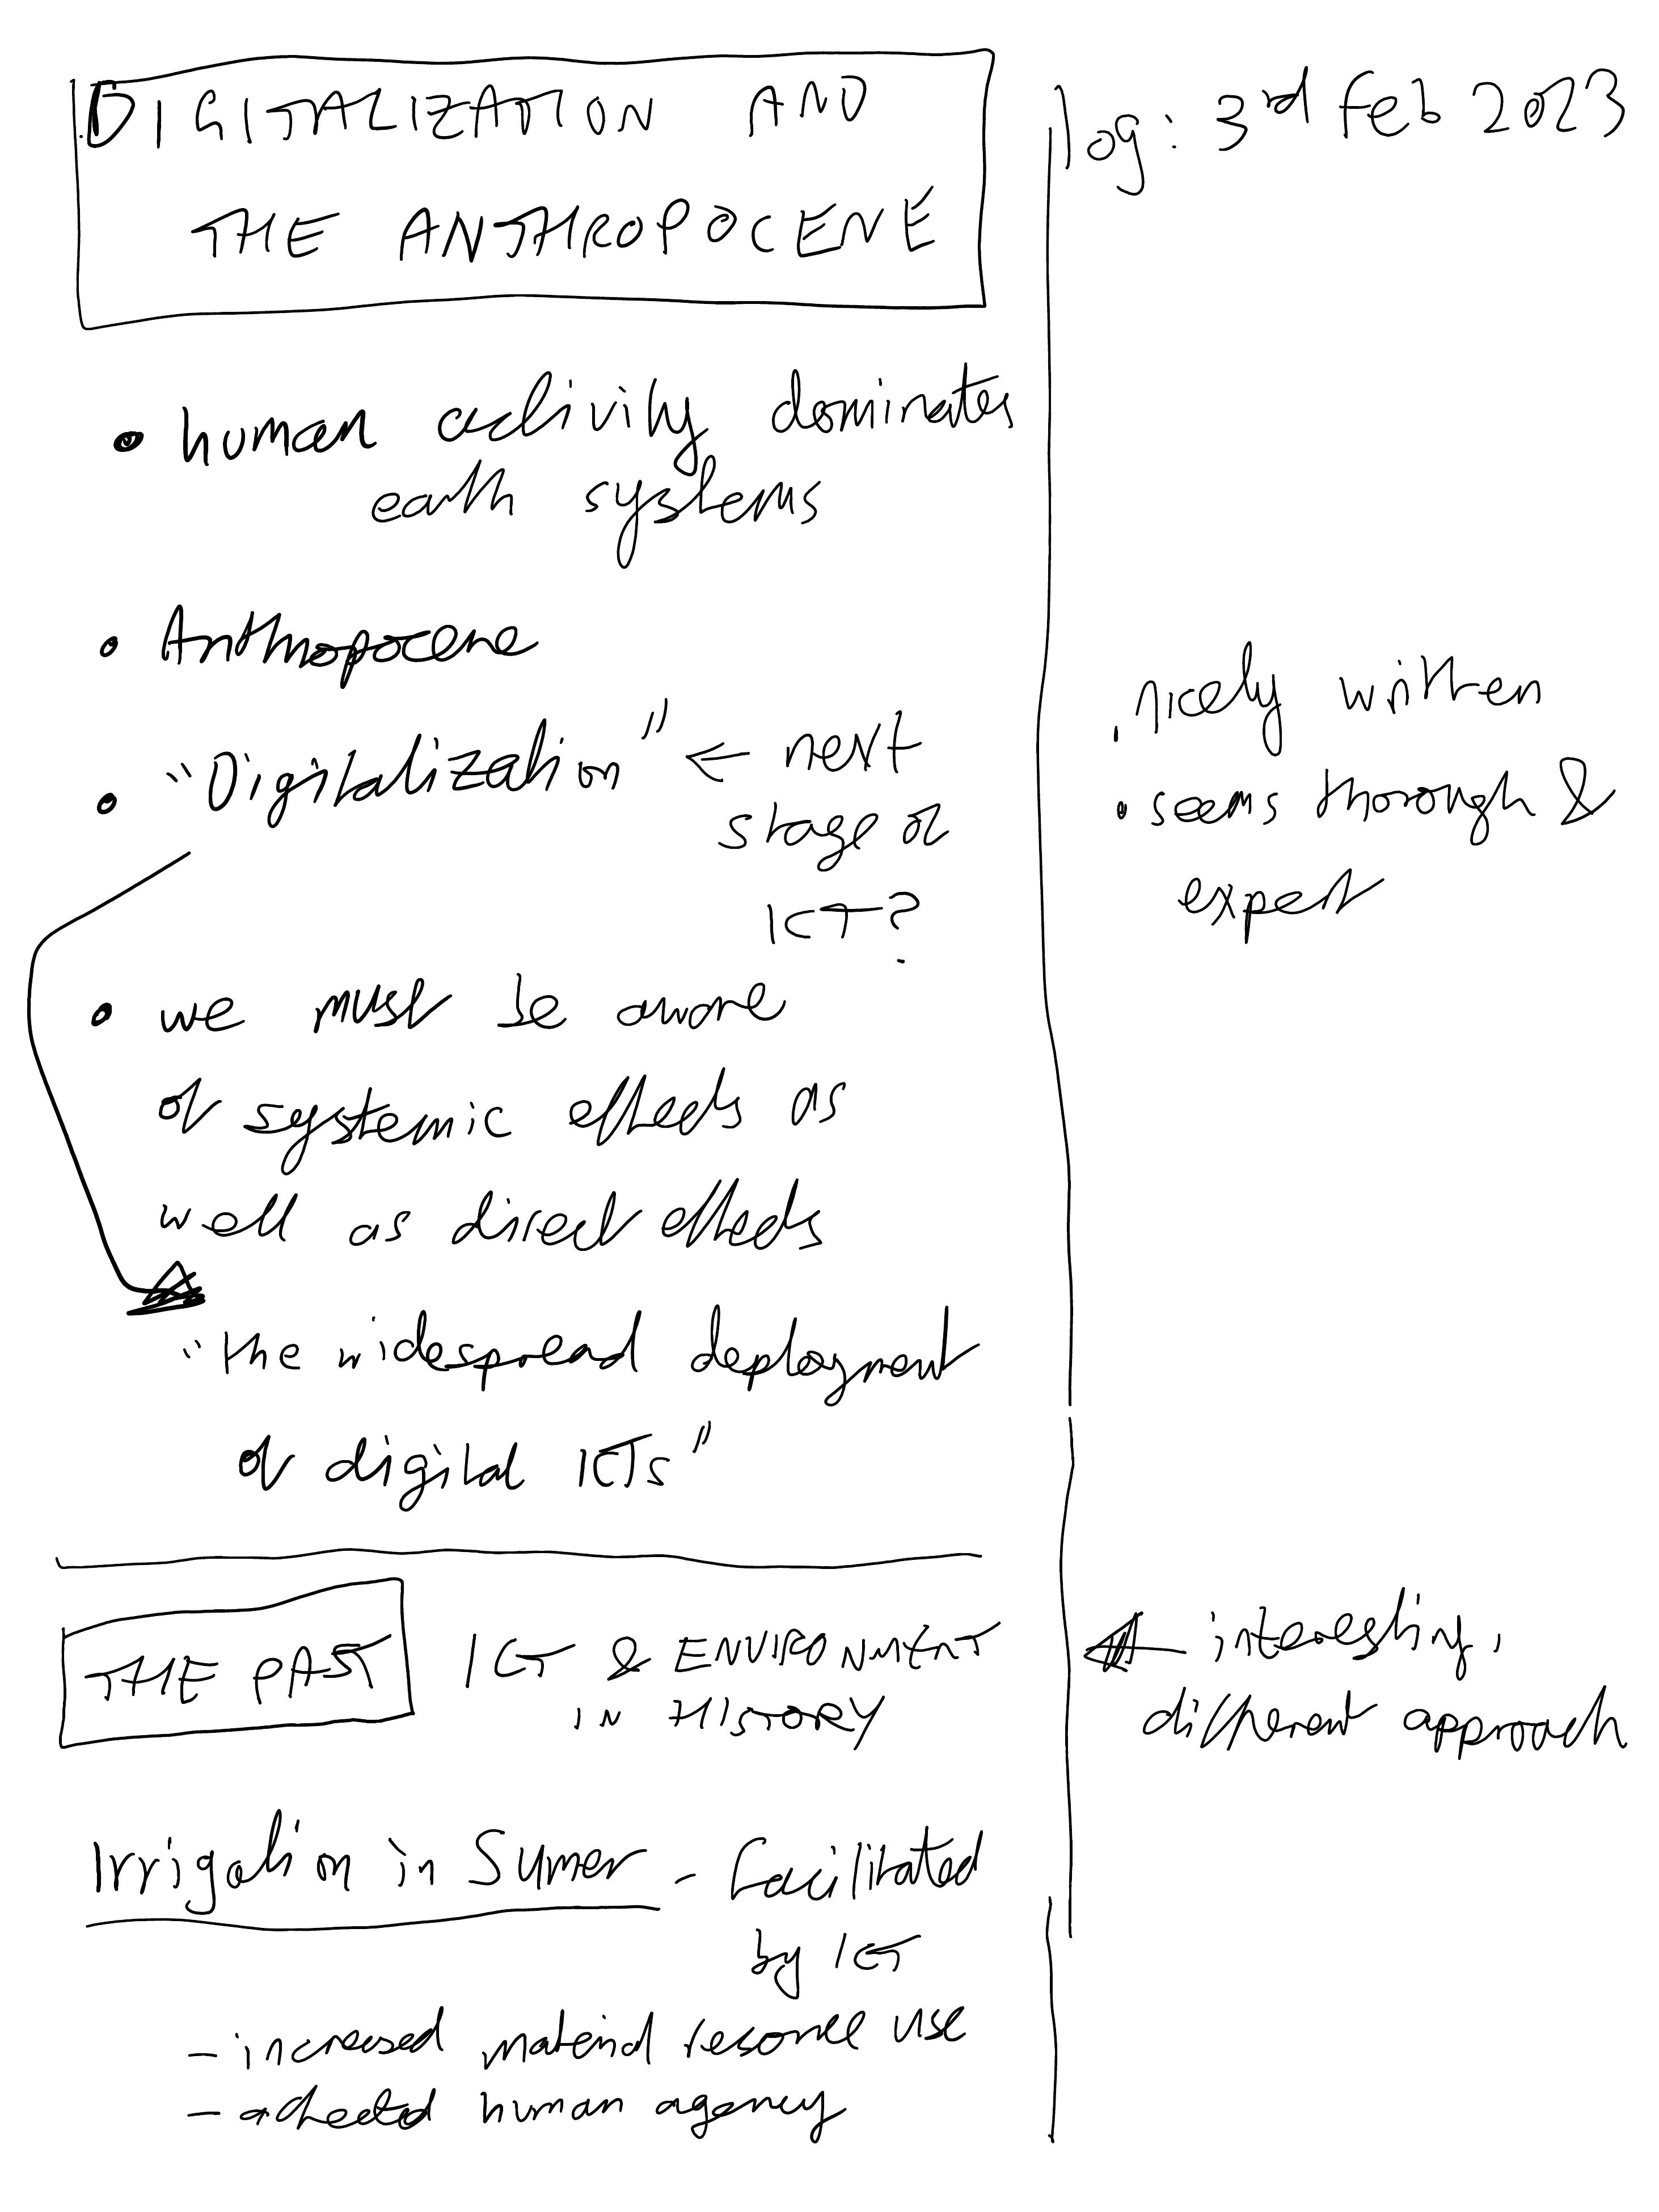 DIGITALIZATION AND
THE ANTHROPOCENE
log: 3rd Feb 2023
• human activity dominates
earth systems
• Anthropocene
• "Digitalization" ← next
stage of
ICT?
• nicely written
• seems thorough &
expert
• we must be aware
of systemic effects as
well as direct effects
"the widespread deployment
of digital ICTs"
THE PAST
ICT & ENVIRONMENT
IN HISTORY
← interesting,
different approach
Irrigation in Sumer - facilitated
by ICT
- increased material resource use
- affected human agency